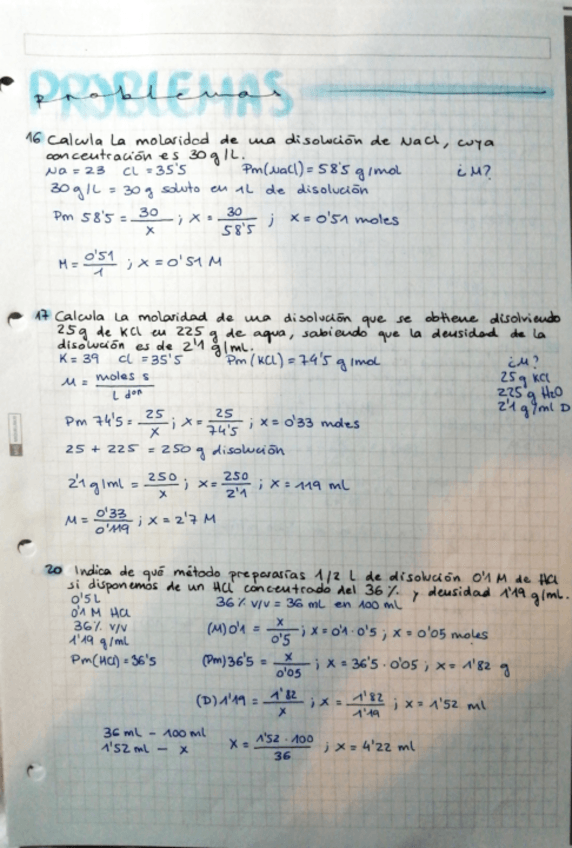 PROBLEMAS
problemas
16 Calcula La molaridad de una disolución de NaCl, cuya
concentración es 30 g/L.
Na = 23 Cl = 35'5 Pm(NaCl) = 58'5 g/mol ¿M?
30 g/L = 30 g soluto en 1L de disolución
Pm 58'5 = 30/x ; x = 30/58'5 ; x = 0'51 moles
M = 0'51/1 ; x = 0'51 M
17 Calcula La molaridad de una disolución que se obtiene disolviendo
25g de KCl en 225 g de agua, sabiendo que la densidad de la
disolución es de 2'1 g/ml.
K = 39 Cl = 35'5 Pm(KCl) = 74'5 g/mol ¿M?
25 g KCl
225 g H2O
2'1 g/ml D
M = moles s/L don
Pm 74'5 = 25/x ; x = 25/74'5 ; x = 0'33 moles
25 + 225 = 250 g disolución
2'1 g/ml = 250/x ; x = 250/2'1 ; x = 119 mL
M = 0'33/0'119 ; x = 2'7 M
20 Indica de qué método prepararías 1/2 L de disolución 0'1 M de HCl
si disponemos de un HCl concentrado del 36% y densidad 1'19 g/ml.
0'5L 36% v/v = 36 mL en 100 mL
0'1 M HCl
36% v/v (M) 0'1 = x/0'5 ; x = 0'1 · 0'5 ; x = 0'05 moles
1'19 g/ml
Pm(HCl) = 36'5 (Pm) 36'5 = x/0'05 ; x = 36'5 · 0'05 ; x = 1'82 g
(D) 1'19 = 1'82/x ; x = 1'82/1'19 ; x = 1'52 ml
36 ml - 100 ml
1'52 ml - x x = 1'52 · 100/36 ; x = 4'22 ml